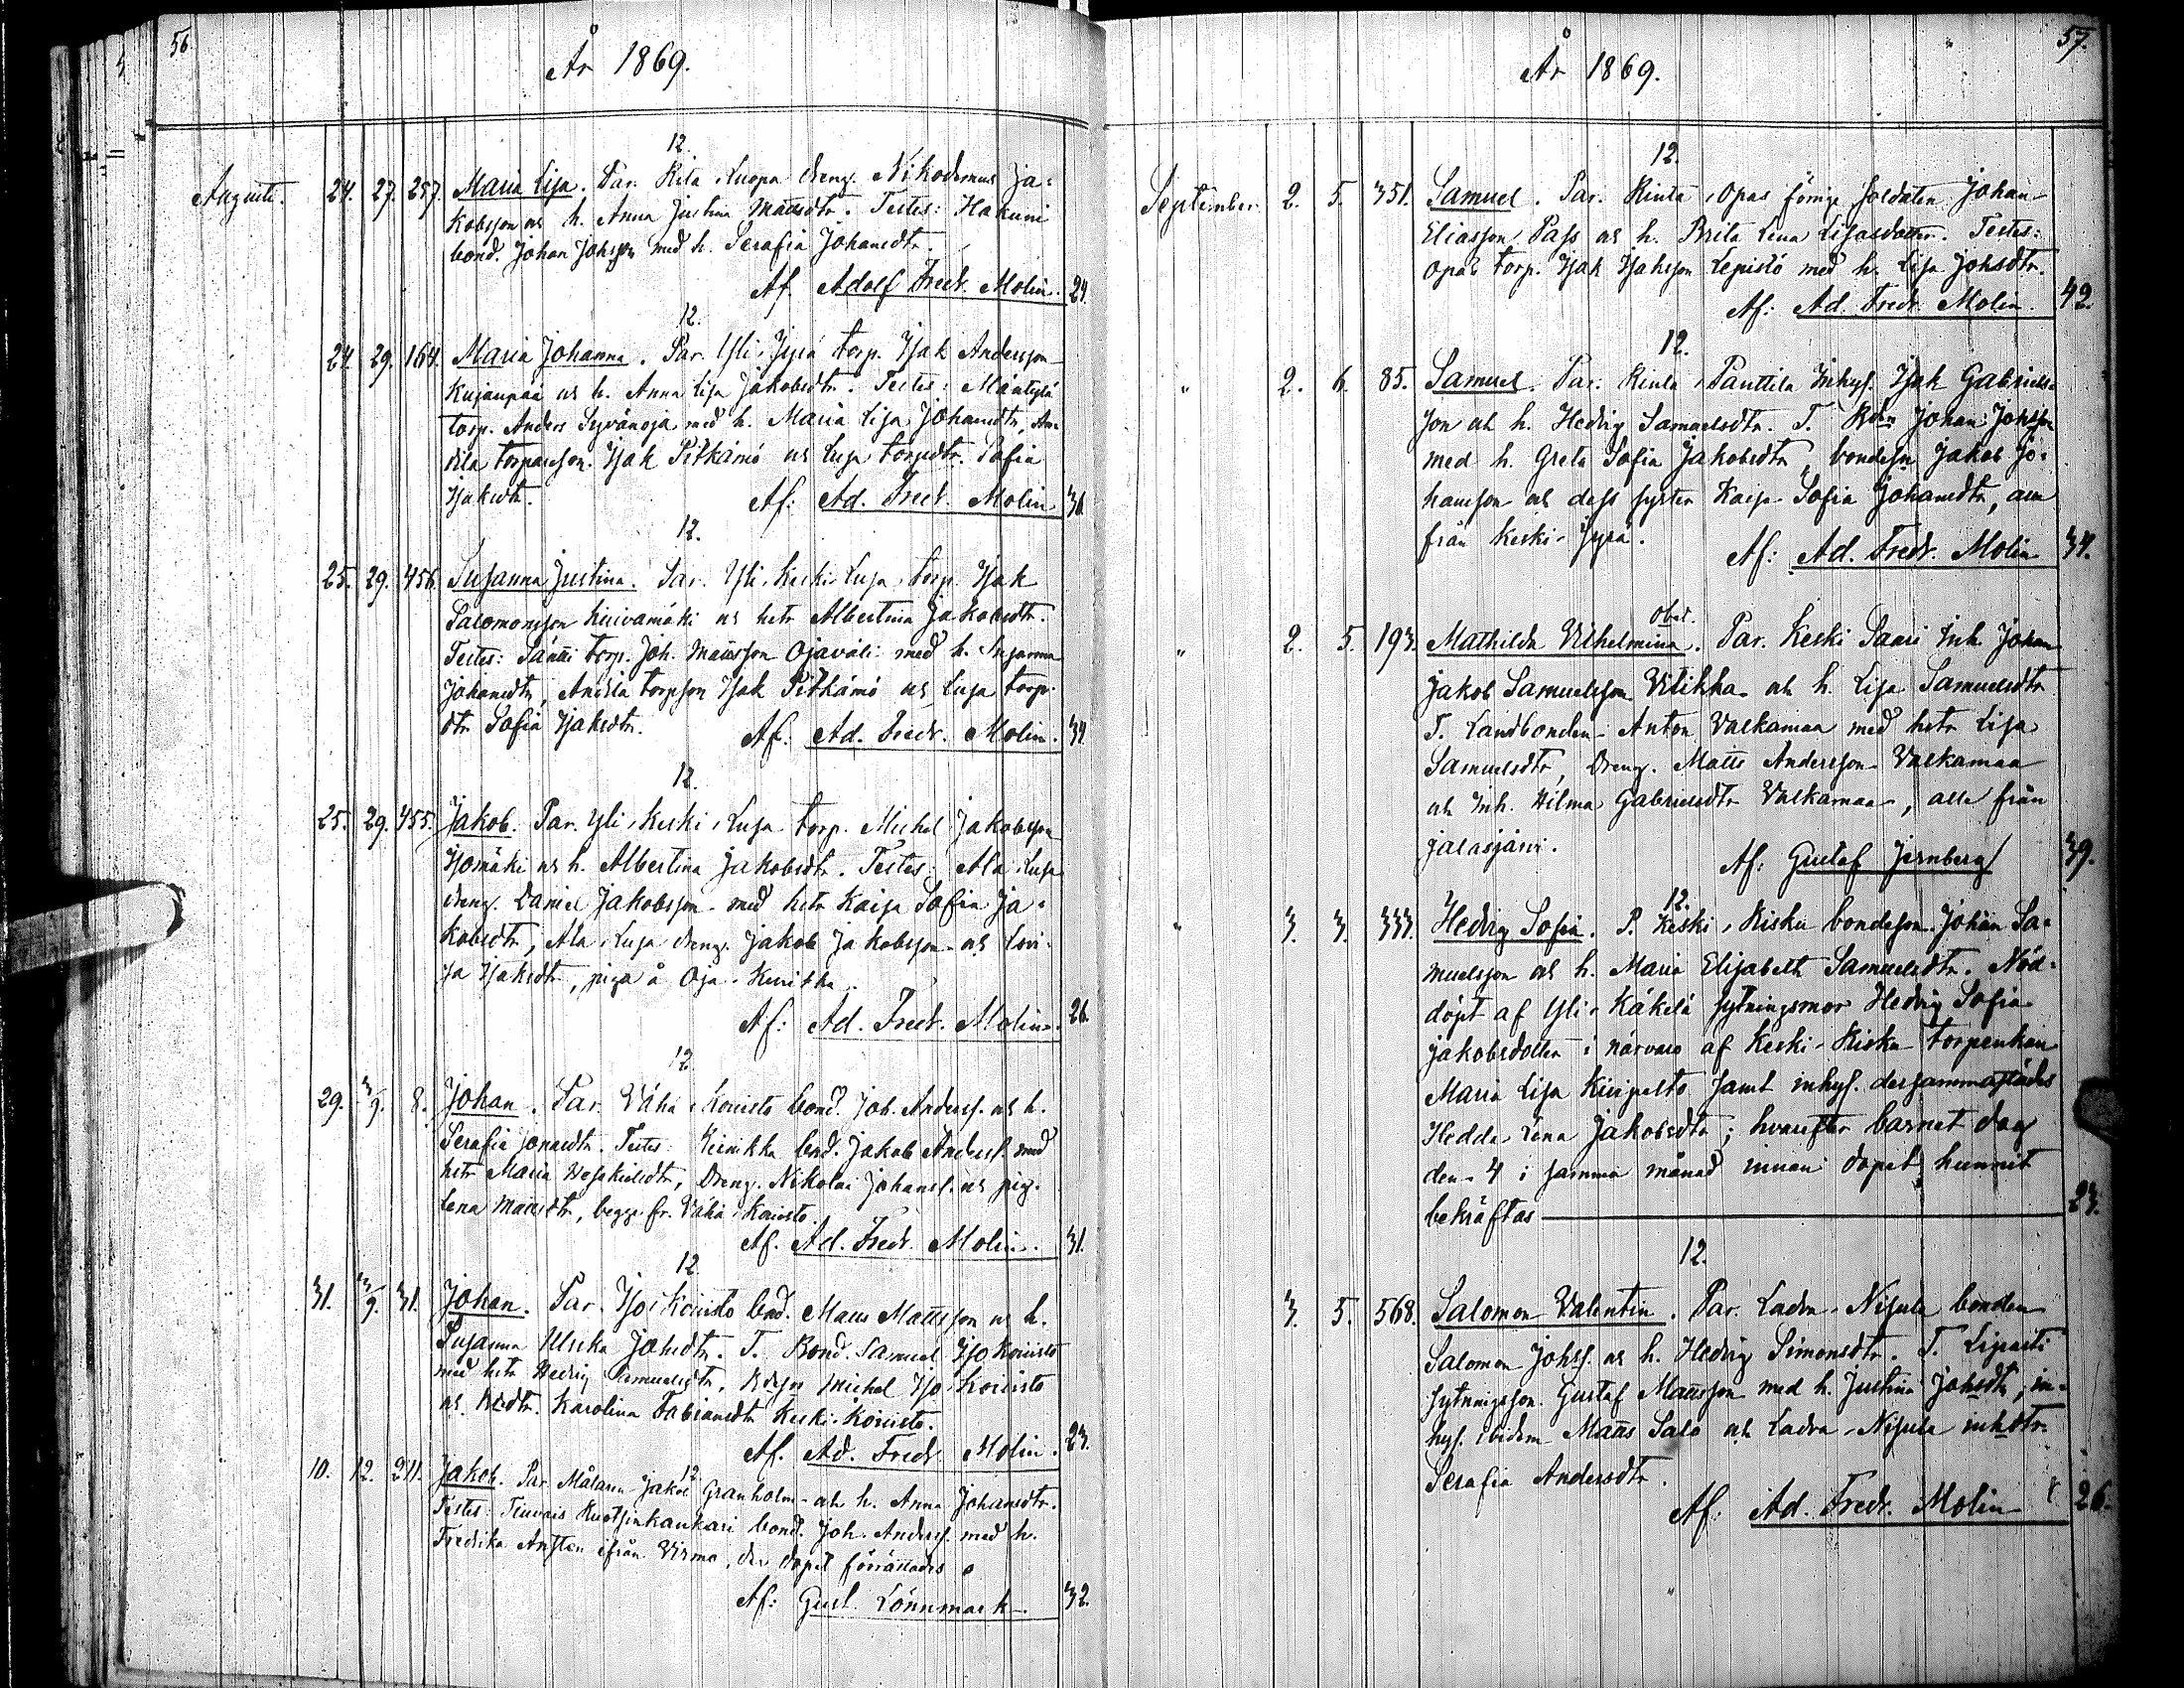 56
År 1869.
12.
Augusti. 24. 27. 257. Maria Lisa. Par. Rita Luopa dreng. Nikodemus Ja-
kobsson och h. Anna Justina Mattsdtr. Testes: Hakuni
bond. Johan Johsson med h. Serafia Johansdtr.
Af. Adolf Fredr. Molin. 24.
12.
24. 29. 164. Maria Johanna. Par. Yli Jyrä torp. Isak Andersson
Kujanpää och h. Anna Lisa Jakobsdtr. Testes: Mäntylä
torp. Anders Syvänoja med h. Maria Lisa Johansdtr, An-
tila torparson. Isak Pitkämö och Lusa torpdtr. Sofia
Isaksdtr. Af: Ad. Fredr. Molin.
12.
25. 29. 456. Susanna Justina. Par. Yli Keski Lusa torp. Isak
Salomonsson Kuivamäki och hstr Albertina Jakobsdtr.
Testes: Sänni torp. Joh. Mattsson Ojaväli med h. Susanna
Johansdtr, Anttila torpson Isak Pitkämö och Lusa torp.
dtr Sofia Isaksdtr. Af. Ad. Fredr. Molin. 34.
12.
25. 29. 455. Jakob. Par. Yli Keski Lusa torp. Michel Jakobsson
Isomäki och h. Albertina Jakobsdtr. Testes: Ala Lusa
dreng. Daniel Jakobsson med hstr Kaisa Sofia Ja-
kobsdtr, Ala Lusa dreng. Jakob Jakobsson och Lovi-
sa Isaksdtr, piga å Oja-Kurikka.
Af: Ad. Fredr. Molin. 26.
12.
29. 3/9. 8. Johan. Par. Vähä Koivisto bond. Joh. Anderss. och h.
Serafia Jonasdtr. Testes: Kurikka bond. Jakob Anderss. med
hstr Maria Hesekielsdtr, Dreng. Nikolai Johanss. och pig.
Lena Mattsdtr, begge fr. Vähä Koivisto.
Af. Ad. Fredr. Molin. 31.
12.
31. 3/9. 31. Johan. Par. Iso Koivisto bond. Matts Mattsson och h.
Susanna Ulrika Johsdtr. T. Bond. Samuel Iso Koivisto
med hstr Hedvig Samuelsdtr, Bdeson Michel Iso Koivisto
och Bdedtr. Karolina Fabiansdtr Keski Koivisto.
Af. Ad. Fredr. Molin. 23.
12.
10. 12. 211. Jakob. Par. Målaren Jakob Granholm och h. Anna Johansdtr.
Testes: Teuvais Ruotsinkankari bond. Joh. Anderss. med h.
Fredrika ifrån Virmo, der dopet förrättades
Af: Gust. Lönnmark. 32.
57.
År 1869.
12.
September. 2. 5. 351. Samuel. Par. Rinta Opas förrige Soldaten Johan
Eliasson Pass och h. Brita Lena Lisasdotter. Testes:
Opas torp. Isak Isaksson Lepistö med h. Lisa Johsdtr.
Af: Ad. Fredr. Molin. 42.
12.
" 2. 6. 85. Samuel. Par. Rinta Panttila Inhys. Isak Gabriels-
son och h. Hedvig Samuelsdtr. T. Bdn Johan Johsson
med h. Greta Sofia Jakobsdtr, bondesn Jakob Jo-
hansson och dess syster Kaisa Sofia Johansdtr, alla
från Keski-Jyrä.
Af: Ad. Fredr. Molin 34.
obel.
" 2. 5. 193. Mathilda Vilhelmina. Par. Keski Saari Inh. Johan
Jakob Samuelsson Vitikka och h. Lisa Samuelsdtr
T. Landbonden Anton Valkamaa med hstr Lisa
Samuelsdtr, Dreng. Matts Andersson Valkamaa
och Inh. Hilma Gabrielsdtr Valkamaa, alla från
Jalasjärvi.
Af: Gustaf Jernberg 39.
12.
" 3. 3. 333. Hedvig Sofia. P. Keski Risku bondeson Johan Sa-
muelsson och h. Maria Elisabeth Samuelsdtr. Nöd-
döpt af Yli Käkelä sytningsmor Hedvig Sofia
Jakobsdotter i närvaro af Keski-Risku torpenkan
Maria Lisa Kiripelto samt inhys. dersammastädes
Hedda Lena Jakobsdtr; hvarefter barnet dog
den 4 i samma månad innan dopet hunnit
bekräftas 23.
12.
3. 5. 568. Salomon Valentin. Par. Ladva-Nisula bonden
Salomon Johss. och h. Hedvig Simonsdtr. T.
sytningsson. Gustaf Mattsson med h. Justina Johsdtr, in-
hys. ibidem Matts Salo och Ladva-Nisula inhdtr.
Serafia Andersdtr.
Af: Ad. Fredr. Molin 26.